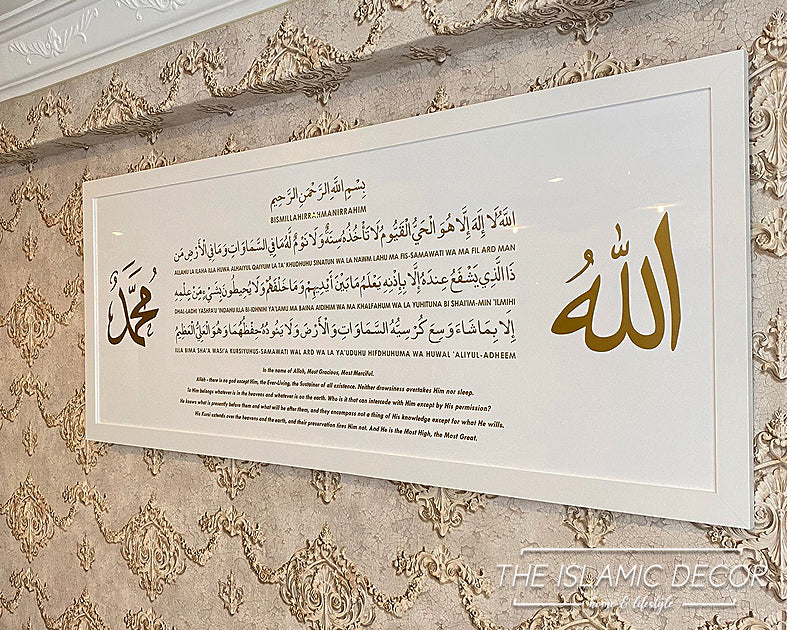 بِسْمِ اللَّهِ الرَّحْمَنِ الرَّحِيمِ
BISMILLAHIRRAHMANIRRAHIM
اللَّهُ لَا إِلَهَ إِلَّا هُوَ الْحَيُّ الْقَيُّومُ لَا تَأْخُذُهُ سِنَةٌ وَلَا نَوْمٌ لَّهُ مَا فِي السَّمَاوَاتِ وَمَا فِي الْأَرْضِ مَن
ALLAHU LA ILAHA ILLA HUWA ALHAIYUL QAIYUM LA TA' KHUDHUHU SINATUN WA LA NAWM LAHU MA FIS-SAMAWATI WA MA FIL ARD MAN
ذَا الَّذِي يَشْفَعُ عِندَهُ إِلَّا بِإِذْنِهِ يَعْلَمُ مَا بَيْنَ أَيْدِيهِمْ وَمَا خَلْفَهُمْ وَلَا يُحِيطُونَ بِشَيْءٍ مِّنْ عِلْمِهِ
DHAL-LADHI YASHFA'U 'INDAHU ILLA BI-IDHNIHI YA'LAMU MA BAINA AIDIHIM WA MA KHALFAHUM WA LA YUHITUNA BI SHAI'IM-MIN 'ILMIHI
إِلَّا بِمَا شَاءَ وَسِعَ كُرْسِيُّهُ السَّمَاوَاتِ وَالْأَرْضَ وَلَا يَئُودُهُ حِفْظُهُمَا وَهُوَ الْعَلِيُّ الْعَظِيمُ
ILLA BIMA SHA'A WASI'A KURSIYUHUS-SAMAWATI WAL ARD WA LA YA'UDUHU HIFDHUHUMA WA HUWAL 'ALIYUL-ADHEEM
In the name of Allah, Most Gracious, Most Merciful.
Allah - there is no god except Him, the Ever-Living, the Sustainer of all existence. Neither drowsiness overtakes Him nor sleep.
To Him belongs whatever is in the heavens and whatever is on the earth. Who is it that can intercede with Him except by His permission?
He knows what is presently before them and what will be after them, and they encompass not a thing of His knowledge except for what He wills.
His Kursi extends over the heavens and the earth, and their preservation tires Him not. And He is the Most High, the Most Great.
الله
مُحَمَّد
THE ISLAMIC DECOR
home & lifestyle